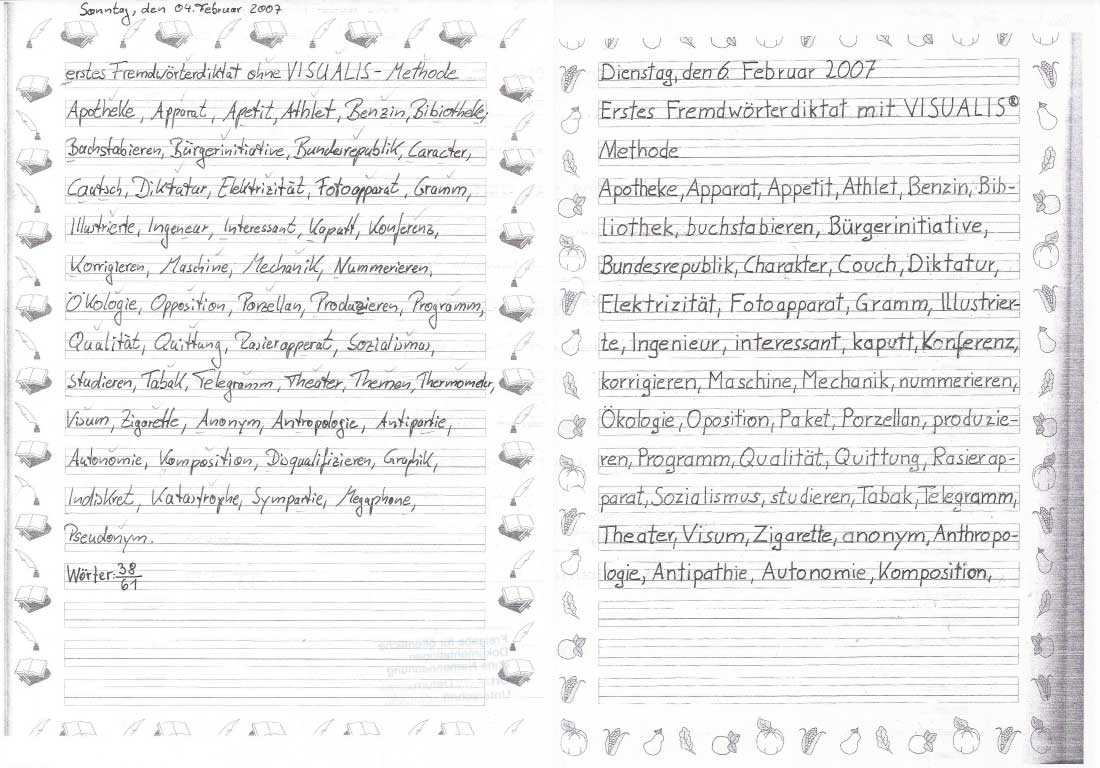 Sonntag, den 04. Februar 2007
erstes Fremdwörterdiktat ohne VISUALIS - Methode
Apotheke, Apparat, Apetit, Athlet, Benzin, Bibiotheke,
Buchstabieren, Bürgerinitiative, Bundesrepublik, Caracter,
Cautsch, Diktatur, Elektrizität, Fotoapparat, Gramm,
Illustrierte, Ingeneur, Interessant, Kaputt, Konferenz,
Korrigieren, Maschine, Mechanik, Nummerieren,
Ökologie, Opposition, Porzellan, Produzieren, Programm,
Qualität, Quittung, Rasierapperat, Sozialismus,
Studieren, Tabak, Telegramm, Theater, Themen, Thermometer,
Visum, Zigarette, Anonym, Antropologie, Antipartie,
Autonomie, Komposition, Disqualifizieren, Graphik,
Indiskret, Katastrophe, Sympartie, Megaphone,
Pseudonym.
Wörter: 38
61
Freigabe für öffentliche
Dokumentationen
Datum
Dienstag, den 6. Februar 2007
Erstes Fremdwörterdiktat mit VISUALIS®
Methode
Apotheke, Apparat, Appetit, Athlet, Benzin, Bib-
liothek, buchstabieren, Bürgerinitiative,
Bundesrepublik, Charakter, Couch, Diktatur,
Elektrizität, Fotoapparat, Gramm, Illustrier-
te, Ingenieur, interessant, kaputt, Konferenz,
korrigieren, Maschine, Mechanik, nummerieren,
Ökologie, Oposition, Paket, Porzellan, produzie-
ren, Programm, Qualität, Quittung, Rasierap-
parat, Sozialismus, studieren, Tabak, Telegramm,
Theater, Visum, Zigarette, anonym, Anthropo-
logie, Antipathie, Autonomie, Komposition,